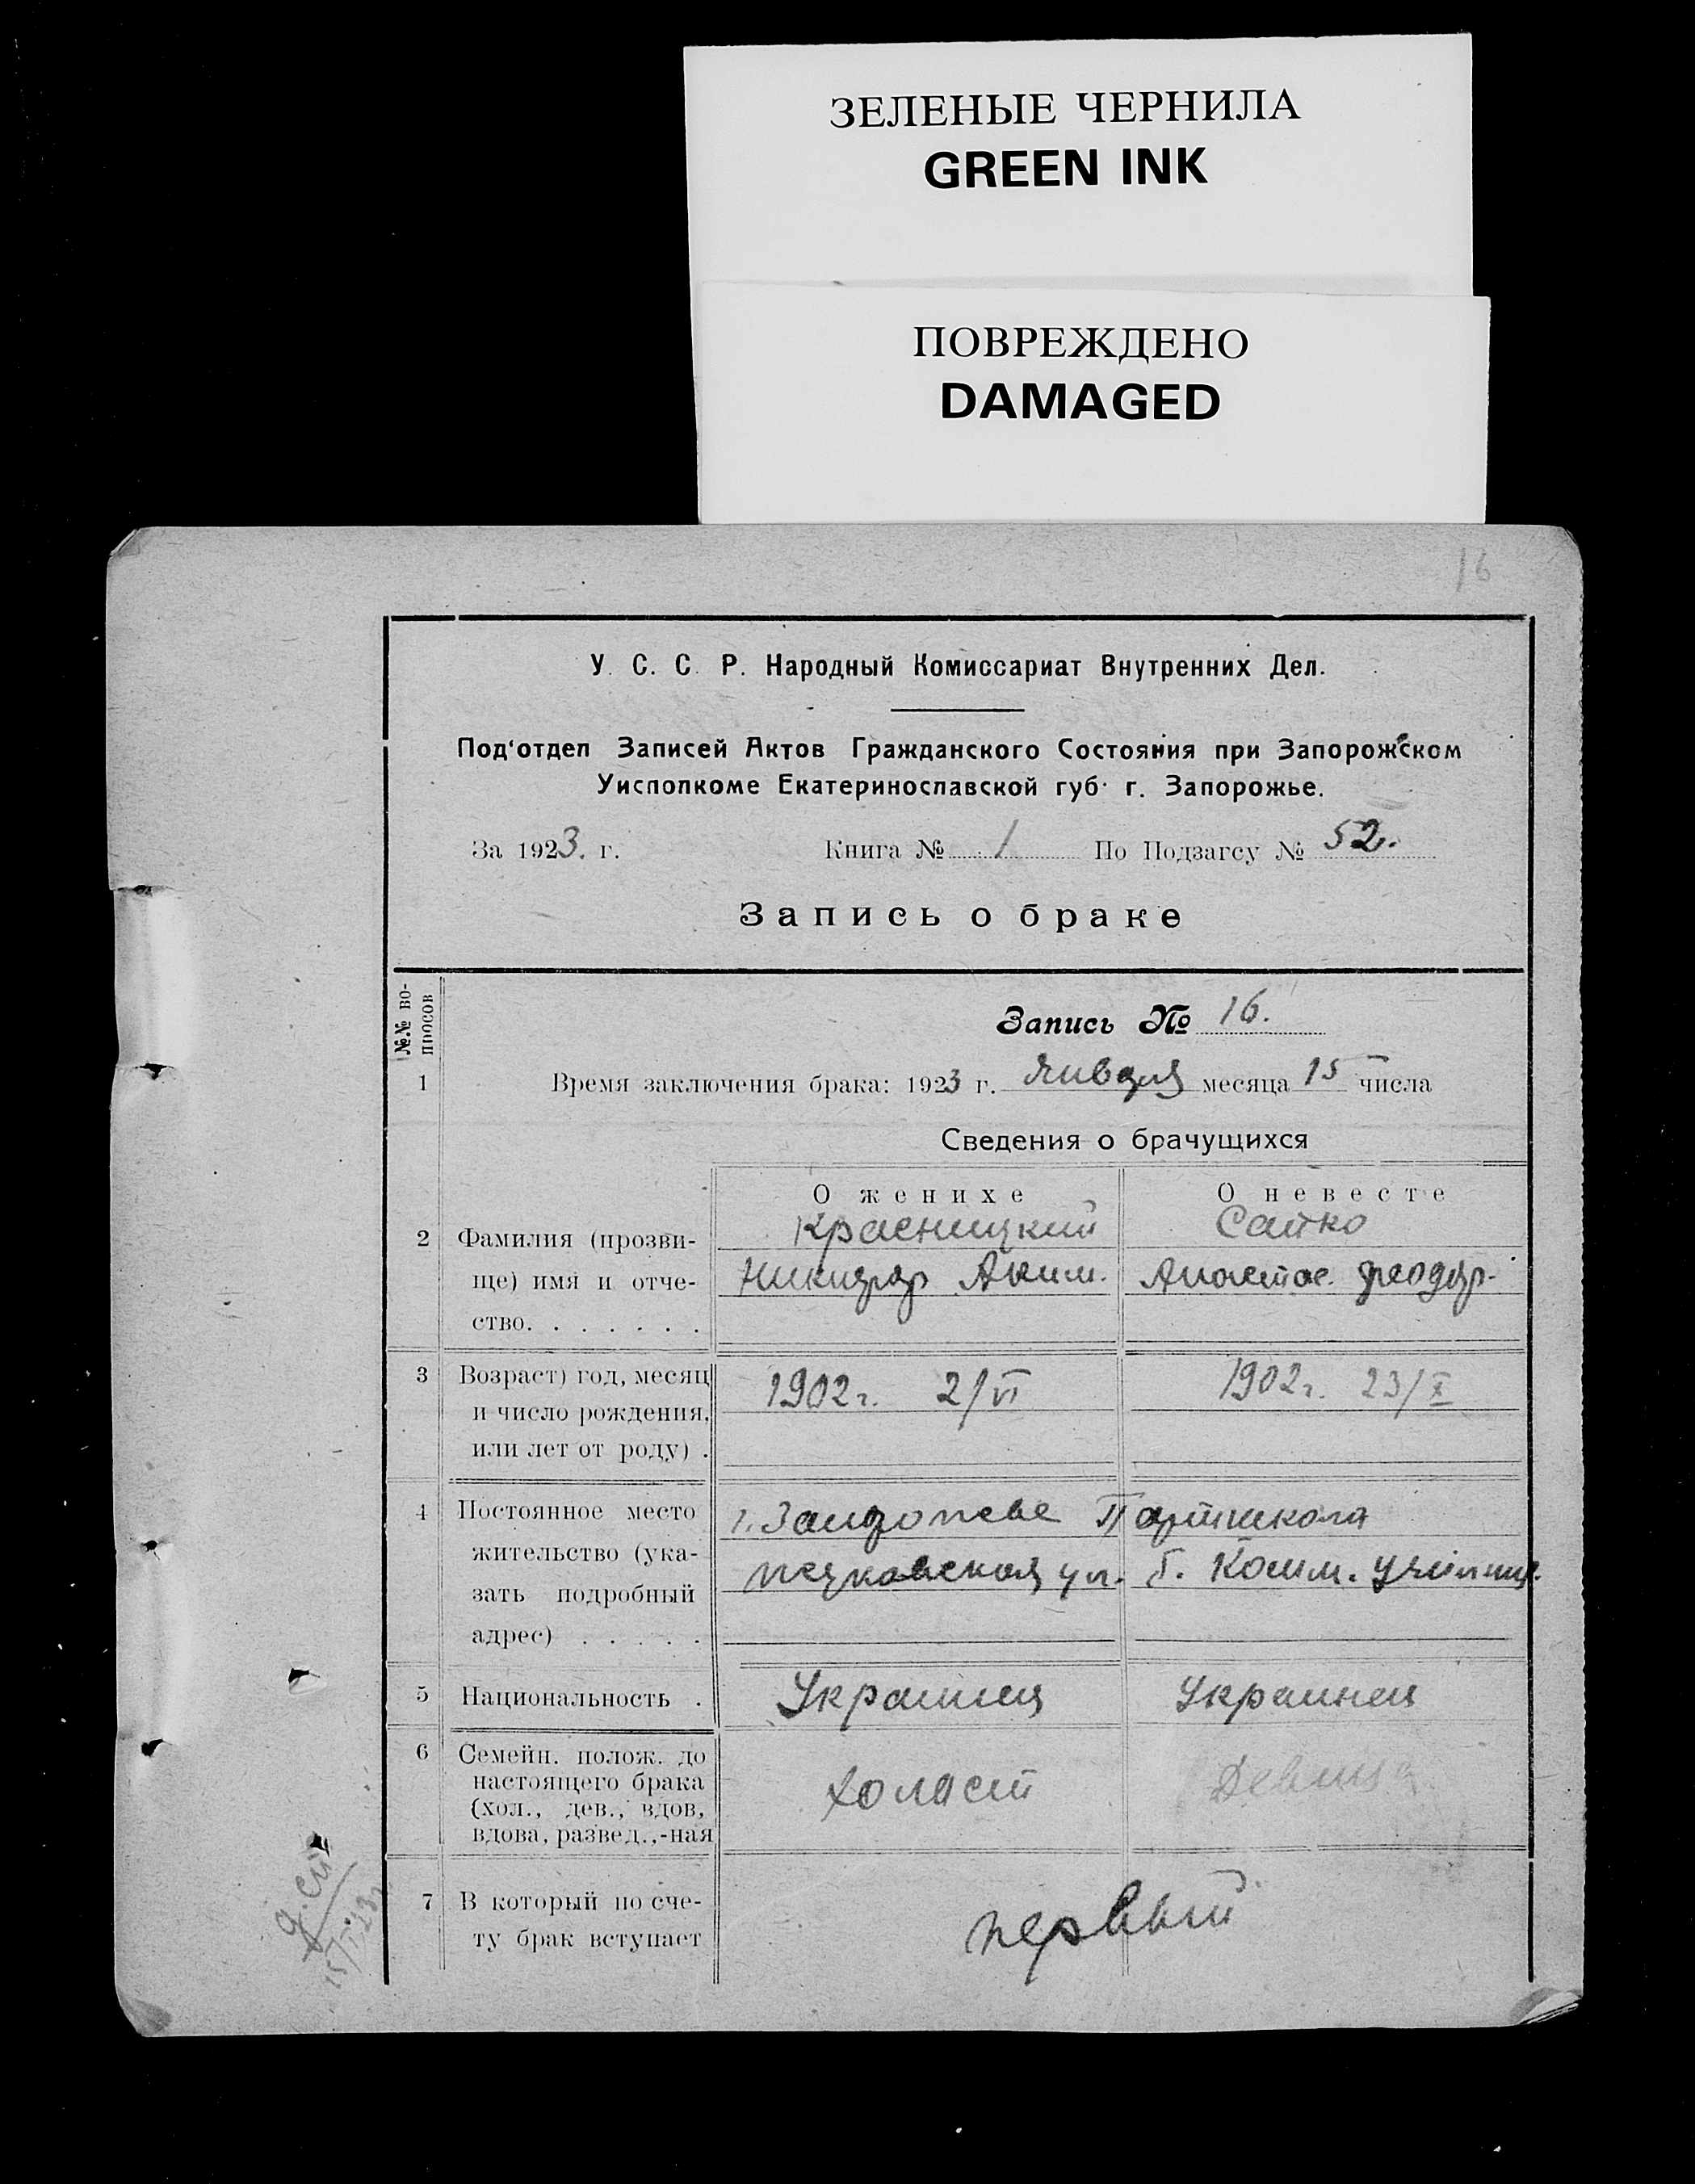 ЗЕЛЕНЫЕ ЧЕРНИЛА
GREEN INK
ПОВРЕЖДЕНО
DAMAGED
16
У. С. С. Р. Народный Комиссариат Внутренних Дел.
Под'отдел Записей Актов Гражданского Состояния при Запорожском
Уисполкоме Екатеринославской губ. г. Запорожье.
За 1923. г. Книга № 1 По Подзагсу № 52.
Запись о браке
№№ во-
просов
Запись № 16.
1 Время заключения брака: 1923 г. января месяца 15 числа
Сведения о брачущихся
О женихе О невесте
2 Фамилия (прозви- Красницкий Сатко
ще) имя и отче- Никифор Аким. Анастас. Феодор.
ство. . . . . . .
3 Возраст) год, месяц 1902г. 2/VI 1902г. 23/X
и число рождения,
или лет от роду) .
4 Постоянное место г. Запорожье Партшкола
жительство (ука- ул. б. Комм. училищ.
зать подробный
адрес) . . . . .
5 Национальность . Украинец Украинец
6 Семейн. полож. до
настоящего брака холост Девица
(хол., дев., вдов,
вдова, развед.,-ная
7 В который по сче- первый
ту брак вступает
15/I 23г.